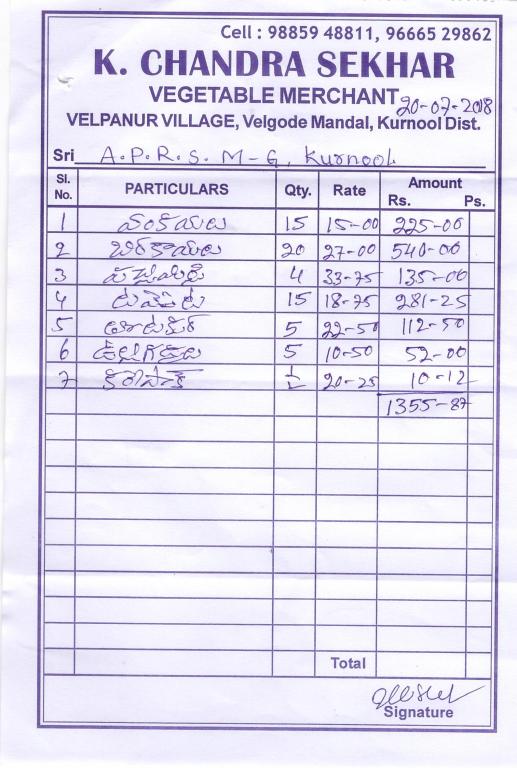 Cell : 98859 48811, 96665 29862
K. CHANDRA SEKHAR
VEGETABLE MERCHANT 20-07-2018
VELPANUR VILLAGE, Velgode Mandal, Kurnool Dist.
Sri A.P.R.S. M-G, Kurnool
Sl. No. PARTICULARS Qty. Rate Amount Rs. Ps.
1 వంకాయలు 15 15-00 225-00
2 బీరకాయలు 20 27-00 540-00
3 పచ్చిమిర్చి 4 33-75 135-00
4 టమోటు 15 18-75 281-25
5 5 22-50 112-50
6 ఉల్లిగడ్డలు 5 10-50 52-00
7 కరివేపాకు ½ 20-25 10-12
1355-87
Total
Signature